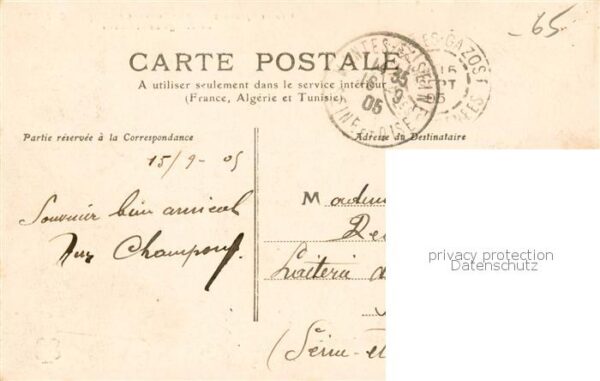 -65
CARTE POSTALE
A utiliser seulement dans le service intérieur
(France, Algérie et Tunisie)
Partie réservée à la Correspondance
Adresse du Destinataire
15/9-05
Souvenir bien amical
M
Laiterie
(Seine-et
privacy protection
Datenschutz